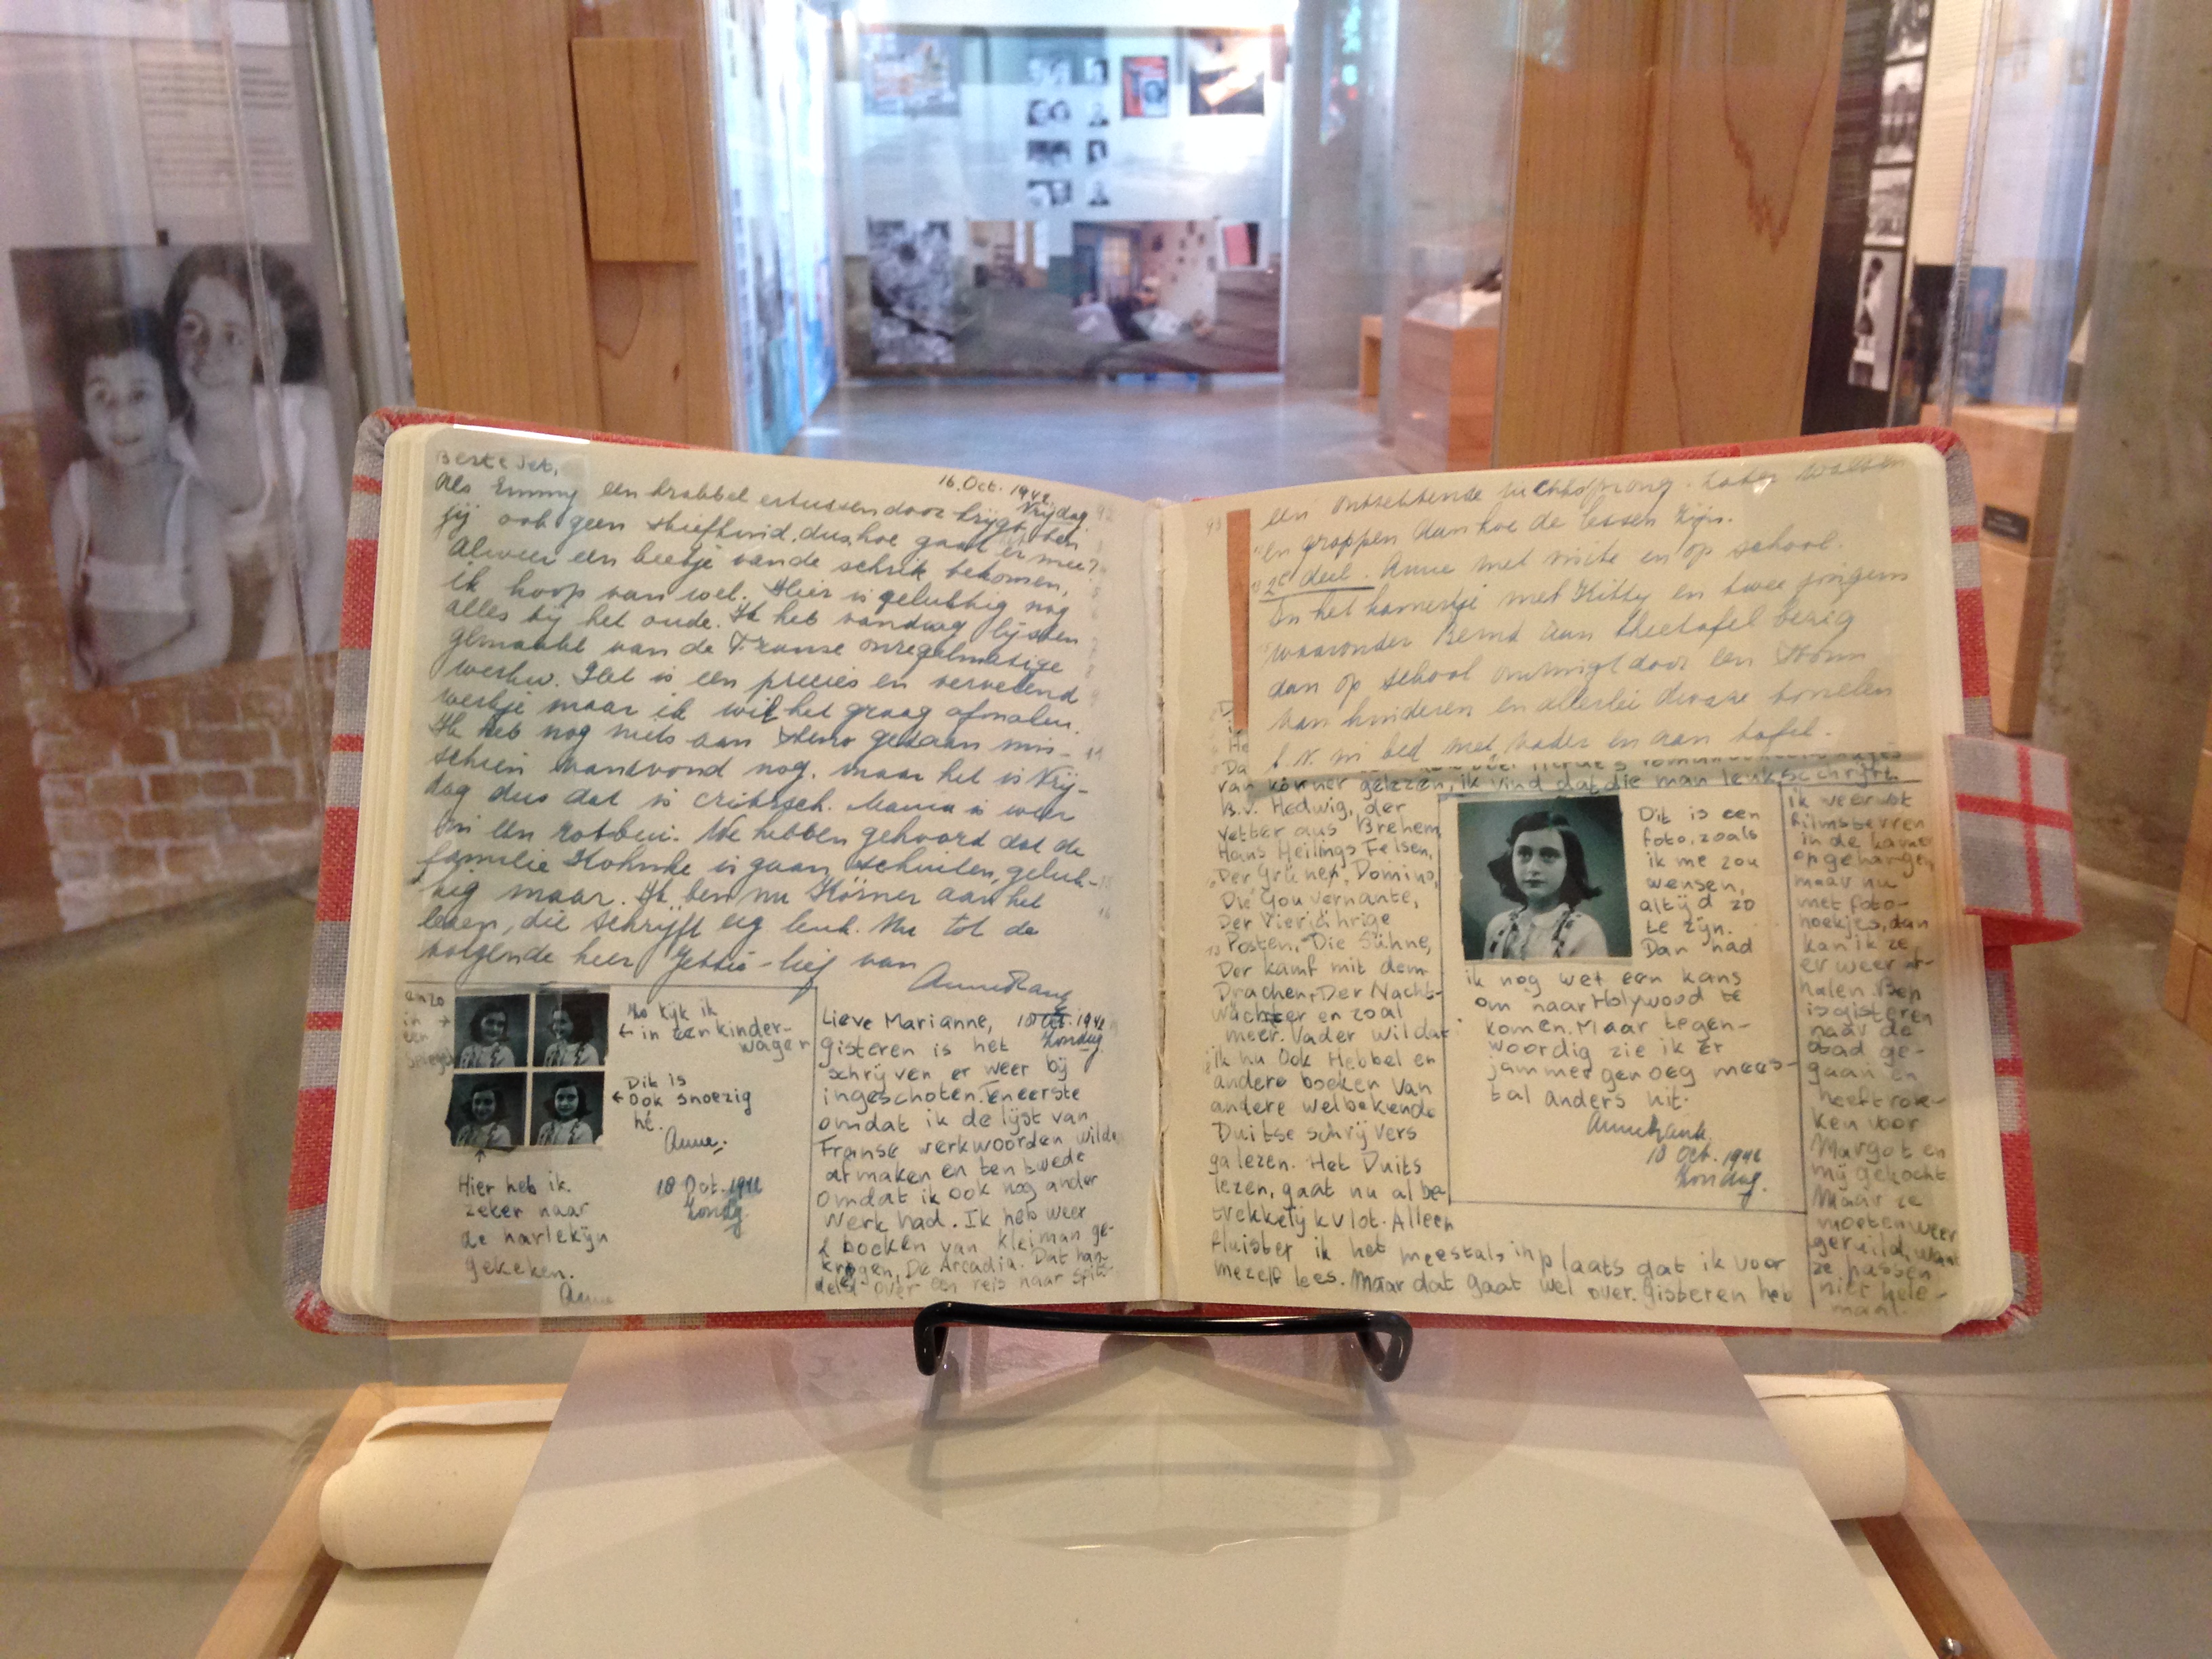 Beste Jet,
16. Oct. 1942.
Vrijdag.
Als Emmy een krabbel ertussendoor krijgt ben
jij ook geen stiefkind, dus, hoe gaat er mee?
Alweer een beetje van de schrik bekomen,
ik hoop van wel. Hier is gelukkig nog
alles bij het oude. Ik heb vandaag lijsten
gemaakt van de Franse onregelmatige
werkw. Het is een precies en vervelend
werkje maar ik wil het graag afmaken.
Ik heb nog niets aan steno gedaan mis-
schien vanavond nog, maar het is Vrij-
dag dus dat is critisch. Mama is weer
in een rotbui. We hebben gehoord dat de
familie is gaan schuilen, geluk-
kig maar. Ik ben nu Körner aan het
lezen, die schrijft erg leuk. Nu tot de
volgende keer Jettie-lief van
Anne Frank
enzo
in →
een
No kijk ik
← in een kinder-
wagen
Dit is
← Ook snoezig
hé.
Anne.
Hier heb ik
zeker naar
de harlekijn
gekeken.
Anne
18 Oct. 1942
Zondag.
Lieve Marianne,
18 Oct. 1942
Zondag
gisteren is het
schrijven er weer bij
ingeschoten. Teneerste
omdat ik de lijst van
Franse werkwoorden wilde
afmaken en ten twede
omdat ik ook nog ander
werk had. Ik heb weer
2 boeken van Kleiman ge-
kregen, De Arcadia. Dat han-
deld over een reis naar Spits-
93
een ontzettende luchtsprong. Later walsen
en grappen aan hoe de lessen zijn.
2e deel. Anne met visite en op school.
In het kamertje met Kitty en twee jongens
waaronder Bernd aan theetafel bezig
dan op school omringd door een
van kinderen en allerlei dwaze tonelen
b.v. in bed met vader en aan tafel.
van körner gelezen, ik vind dat die man leuk schrijft.
B.v. Hedwig, der
Vetter aus Brehem,
Hans Heilings Felsen,
Der Grünen, Domino,
Die Gouvernante,
Der Vierjährige
Posten, Die Sühne,
Der kamf mit dem
Drachen, Der Nacht-
wächter en zoal
meer. Vader wil dat
ik nu Ook Hebbel en
andere boeken van
andere welbekende
Duitse schrijvers
ga lezen. Het Duits
lezen, gaat nu al be-
trekkelijk vlot. Alleen
fluister ik het meestals in plaats dat ik voor
mezelf lees. Maar dat gaat wel over. Gisteren heb
Dit is een
foto, zoals
ik me zou
wensen,
altijd zo
te zijn.
Dan had
ik nog wel een kans
om naar Holywood te
komen. Maar tegen-
woordig zie ik er
jammer genoeg mees-
tal anders uit.
Annefrank.
18 Oct. 1942
Zondag.
ik weer wat
filmsterren
in de kamer
opgehangen,
maar nu
met foto-
hoekjes, dan
kan ik ze
er weer af-
halen. Bep
is gisteren
naar de
stad ge-
gaan en
heeft rok-
ken voor
Margot en
mij gekocht
Maar ze
moeten weer
geruild, want
ze passen
niet hele-
maal.